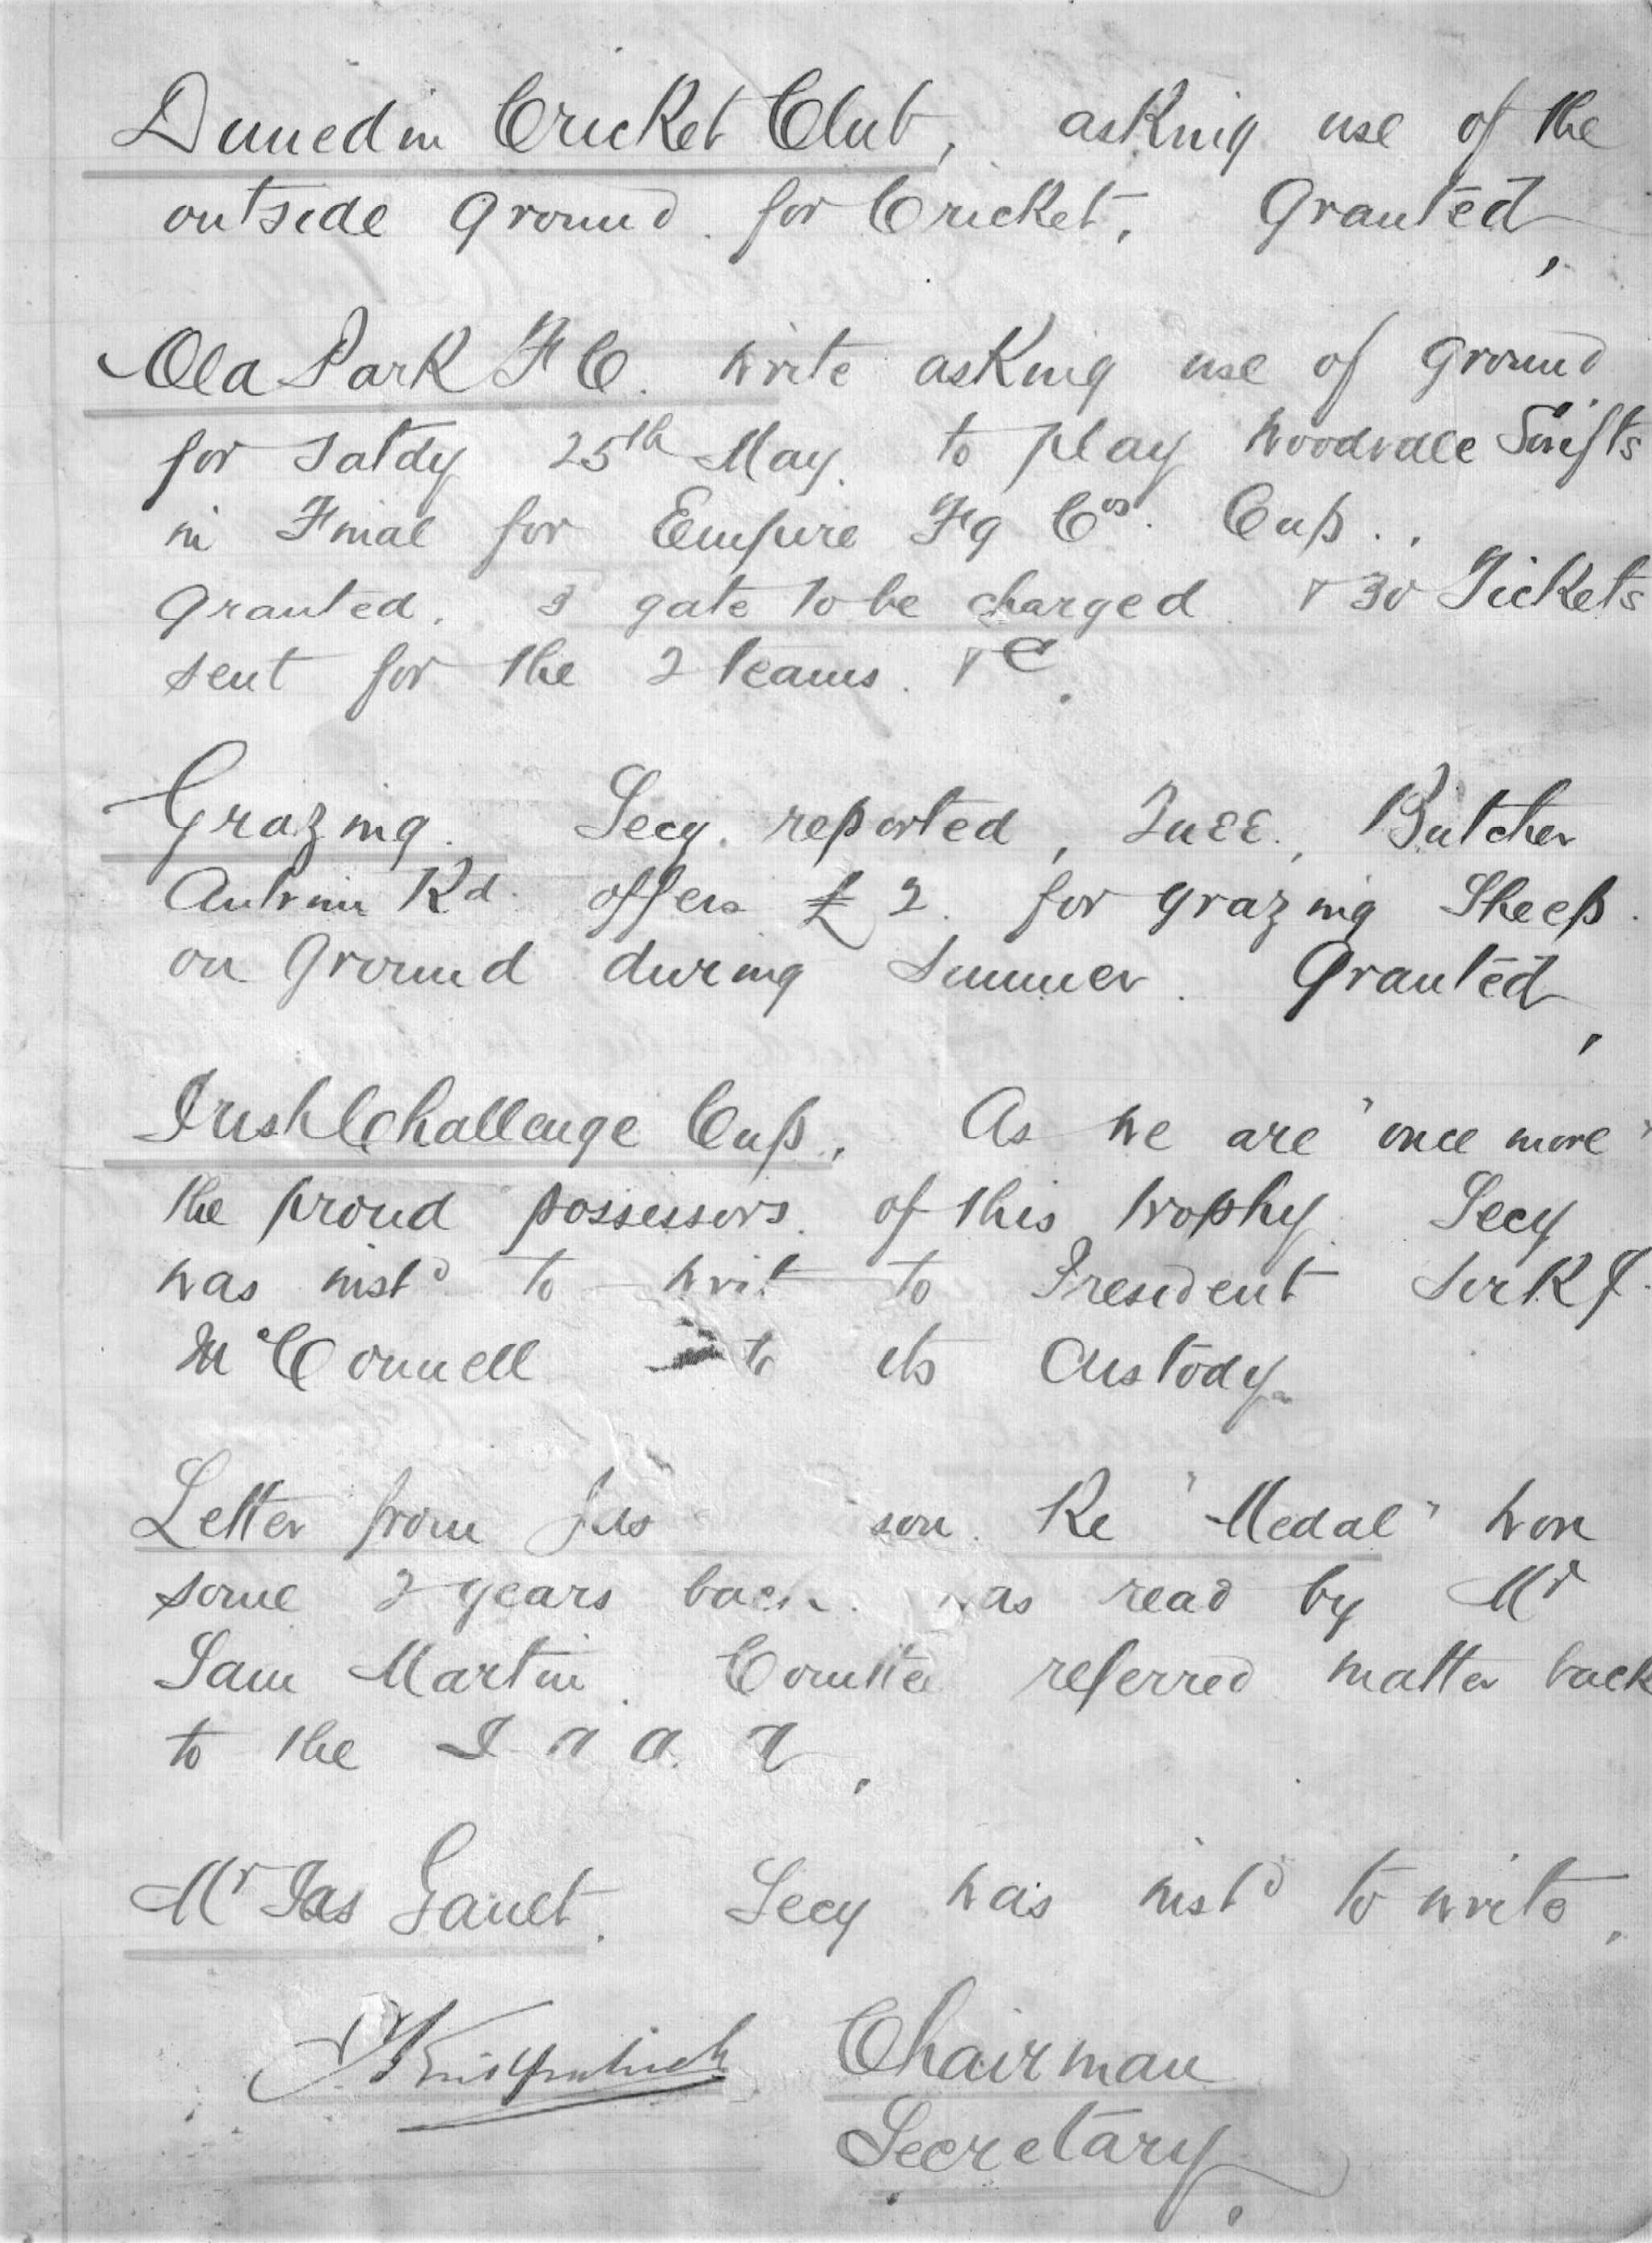 Dunedin Cricket Club, asking use of the
outside ground for Cricket, Granted,
Old Park F C. write asking use of ground
for Satdy 25th May. to play Woodvale Swifts
in Final for Empire Fg Cos. Cup..
Granted. 3 gate to be charged & 30 Tickets
sent for the 2 teams. &c.
Grazing. Secy. reported, Butcher
Antrim Rd. offers £2. for grazing Sheep.
on Ground during Summer. Granted,
Irish Challenge Cup. As we are "once more"
the proud possessors of this trophy. Secy
was instd to to President Sir R J.
McConnell its Custody
Letter from Jas son. Re "Medal" won
some 2 years back. was read by Mr
Sam Martin. Comttee referred matter back
to the
Mr Jas Secy was instd to write.
Chairman
Secretary.